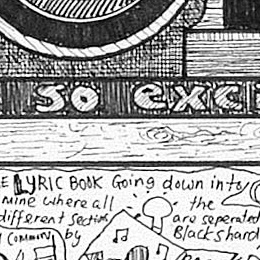 so exc
E LYRIC BOOK Going down into
mine where all the
different section are seperated
by Black shard
COMMON